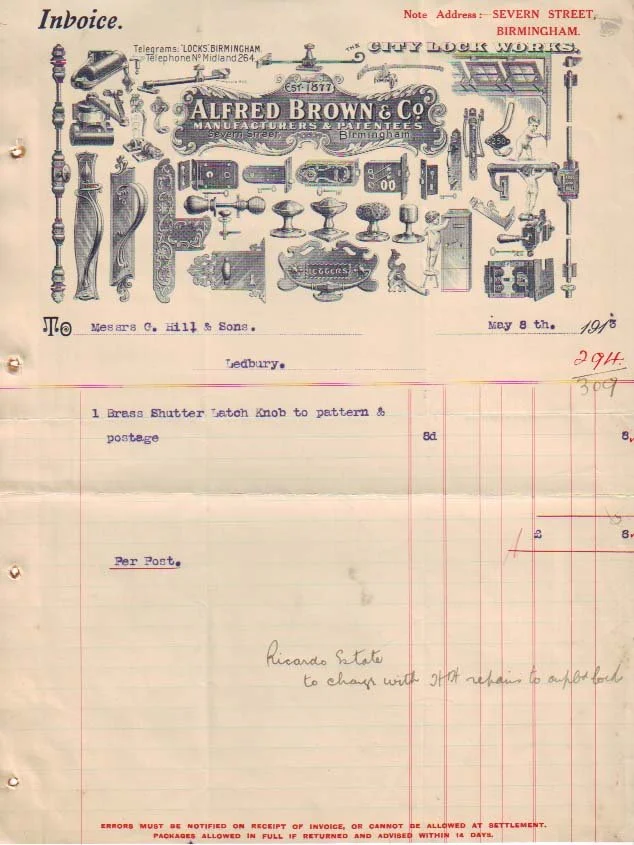 Invoice.
Note Address:- SEVERN STREET,
BIRMINGHAM.
Telegrams: "LOCKS, BIRMINGHAM.
Telephone Nº Midland 264.
THE CITY LOCK WORKS.
EST. 1877
ALFRED BROWN & Co
MANUFACTURERS & PATENTEES
Severn Street Birmingham
EGGERS
To Messrs G. Hill & Sons. May 8 th. 1913
Ledbury.
294.
309
1 Brass Shutter Latch Knob to pattern &
postage 8d 8.
£ 8.
Per Post.
Ricardo Estate
to charge with repairs to
ERRORS MUST BE NOTIFIED ON RECEIPT OF INVOICE, OR CANNOT BE ALLOWED AT SETTLEMENT.
PACKAGES ALLOWED IN FULL IF RETURNED AND ADVISED WITHIN 14 DAYS.